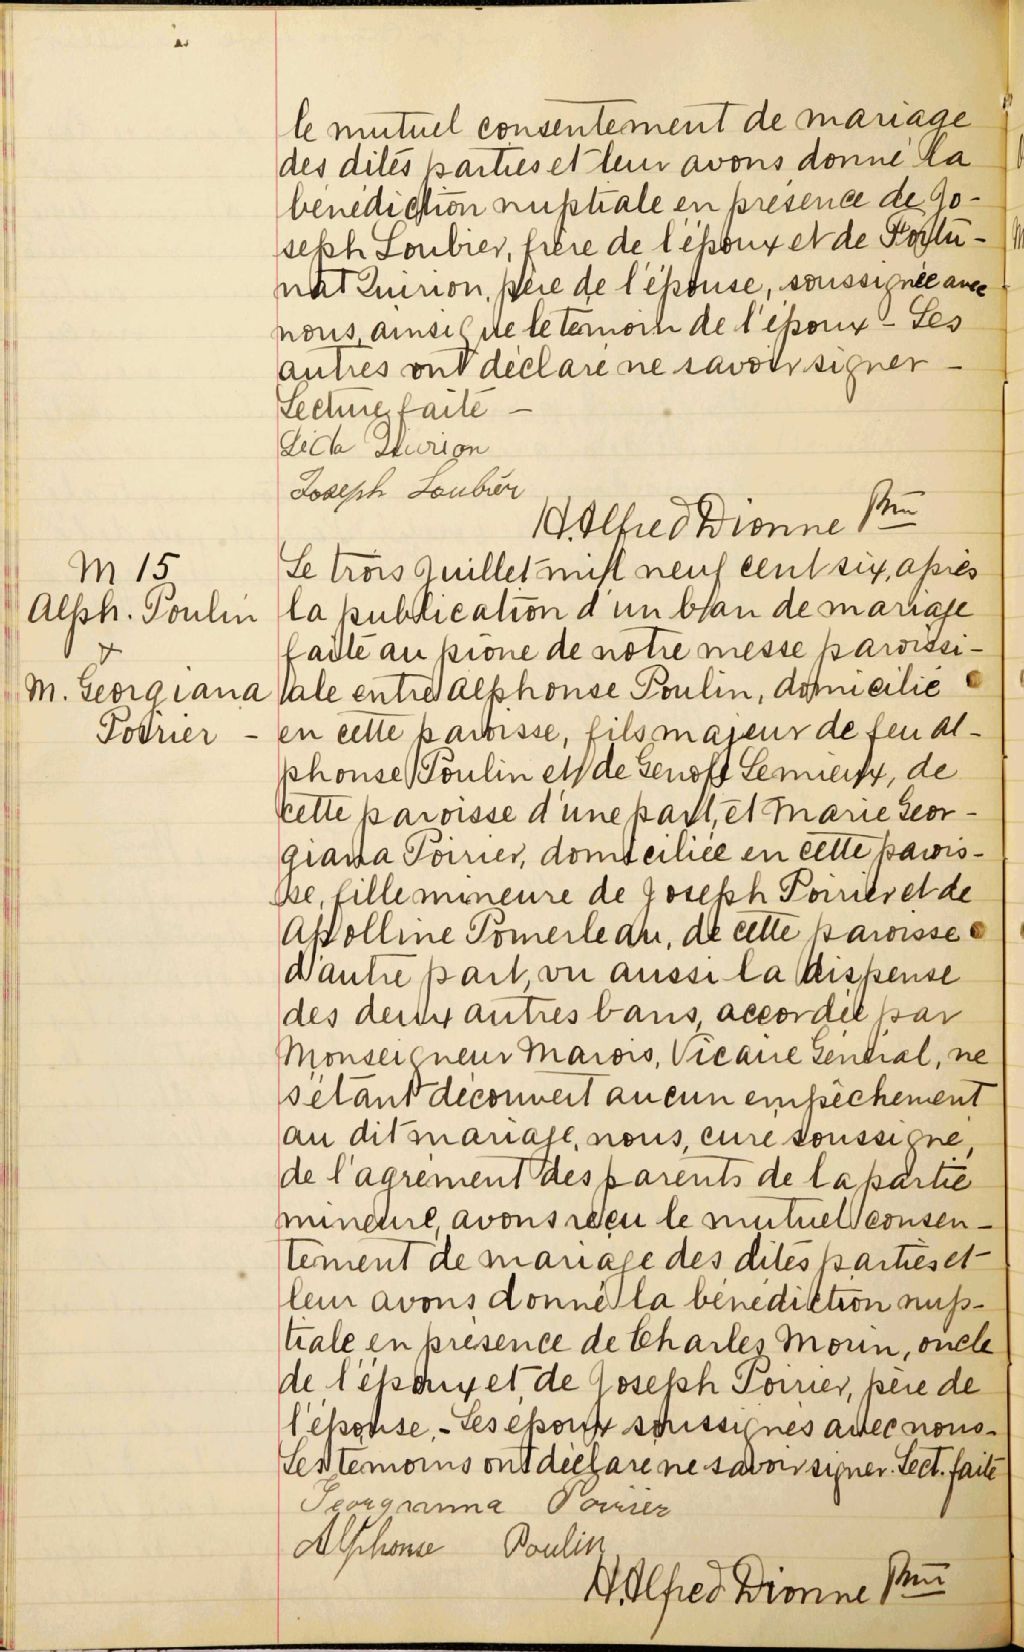 le mutuel consentement de mariage
des dites parties et leur avons donné la
bénédiction nuptiale en présence de Jo-
seph Loubier, frère de l'époux et de Fortu-
nat Quirion, père de l'épouse, soussignée avec
nous, ainsi que le témoin de l'époux - Les
autres ont déclaré ne savoir signer -
Lecture faite -
Quirion
Joseph Loubier
H. Alfred Dionne Ptre
M 15
Alph. Poulin
+
M. Georgiana
Poirier -
Le trois Juillet mil neuf cent six, après
la publication d'un ban de mariage
faite au prône de notre messe paroissi-
ale entre Alphonse Poulin, domicilié
en cette paroisse, fils majeur de feu Al-
phonse Poulin et de Genof. Lemieux, de
cette paroisse d'une part, et Marie Geor-
giana Poirier, domiciliée en cette parois-
se, fille mineure de Joseph Poirier et de
Apolline Pomerleau, de cette paroisse
d'autre part, vu aussi la dispense
des deux autres bans, accordée par
Monseigneur Marois, Vicaire Général, ne
s'étant découvert aucun empêchement
au dit mariage, nous, curé soussigné,
de l'agrément des parents de la partie
mineure, avons reçu le mutuel consen-
tement de mariage des dites parties et
leur avons donné la bénédiction nup-
tiale en présence de Charles Morin, oncle
de l'époux et de Joseph Poirier, père de
l'épouse. - Les époux soussignés avec nous -
Les témoins ont déclaré ne savoir signer. Lect. faite
Georgianna Poirier
Alphonse Poulin
H. Alfred Dionne Ptre